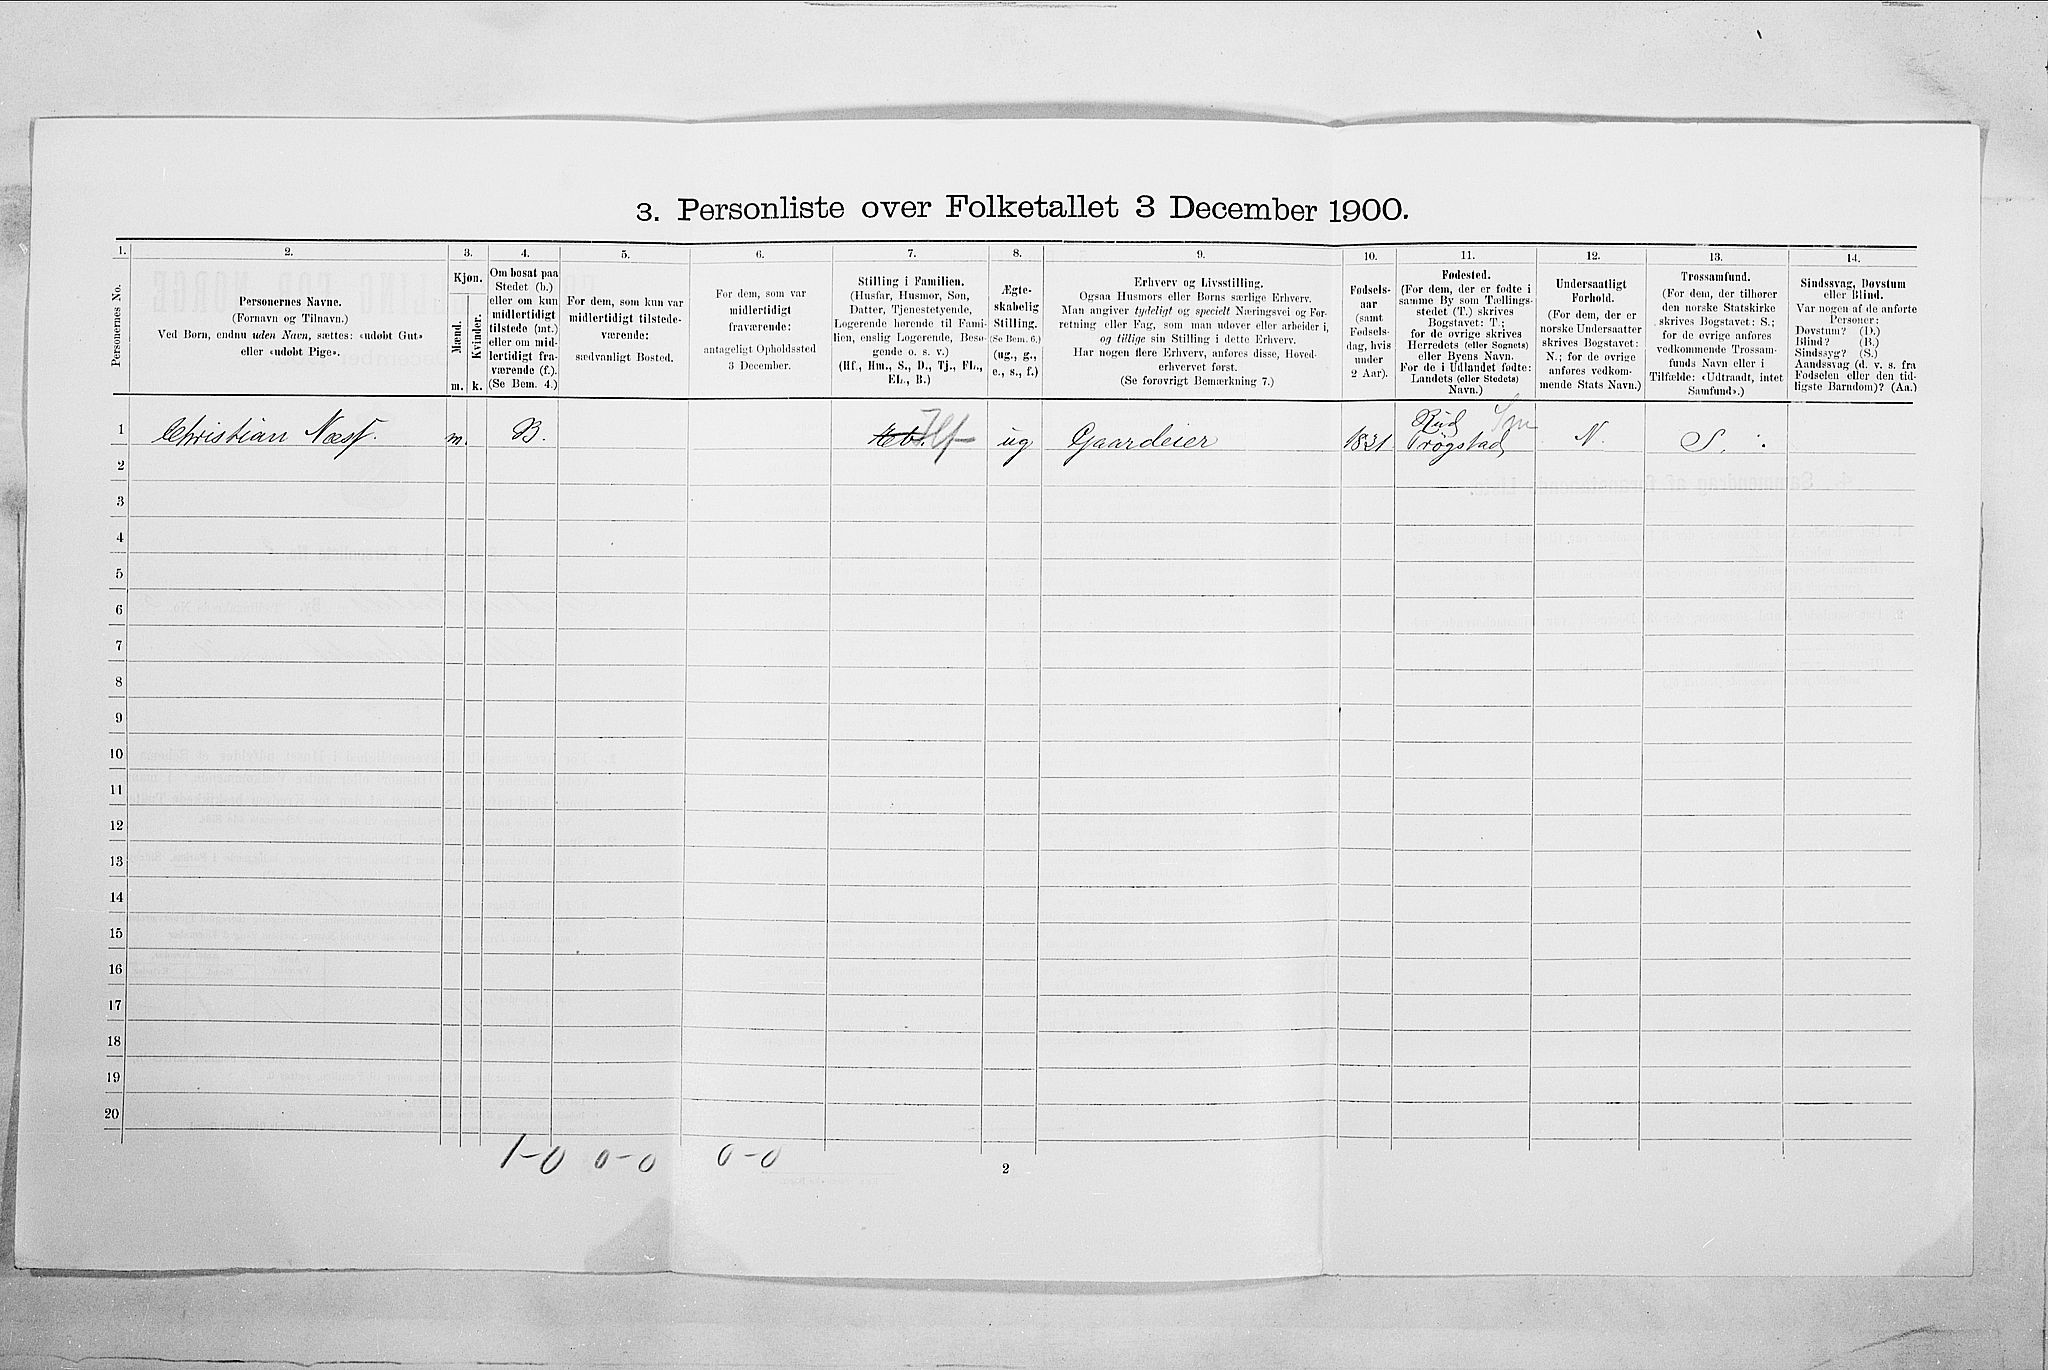 3. Personliste over Folketallet 3 December 1900.
1. 2. 3. 4. 5. 6. 7. 8. 9. 10. 11. 12. 13. 14.
Personernes No.
Personernes Navne.
(Fornavn og Tilnavn.)
Ved Børn, endnu uden Navn, sættes: «udøbt Gut»
eller «udøbt Pige».
Kjøn.
Mænd.
Kvinder.
m. k.
Om bosat paa
Stedet (b.)
eller om kun
midlertidigt
tilstede (mt.)
eller om mid-
lertidigt fra-
værende (f.).
(Se Bem. 4.)
For dem, som kun var
midlertidigt tilstede-
værende:
sædvanligt Bosted.
For dem, som var
midlertidigt
fraværende:
antageligt Opholdssted
3 December.
Stilling i Familien.
(Husfar, Husmor, Søn,
Datter, Tjenestetyende,
Logerende hørende til Fami-
lien, enslig Logerende, Besø-
gende o. s. v.)
(Hf., Hm., S., D., Tj., FL.,
EL., B.)
Ægte-
skabelig
Stilling.
(Se Bem. 6.)
(ug., g.,
e., s., f.)
Erhverv og Livsstilling.
Ogsaa Husmors eller Børns særlige Erhverv.
Man angiver tydeligt og specielt Næringsvei og For-
retning eller Fag, som man udøver eller arbeider i,
og tillige sin Stilling i dette Erhverv.
Har nogen flere Erhverv, anføres disse, Hoved-
erhvervet først.
(Se forøvrigt Bemærkning 7.)
Fødsels-
aar
(samt
Fødsels-
dag, hvis
under
2 Aar).
Fødested.
(For dem, der er fødte i
samme By som Tællings-
stedet (T.) skrives
Bogstavet: T.;
for de øvrige skrives
Herredets (eller Sognets)
eller Byens Navn.
For de i Udlandet fødte:
Landets (eller Stedets)
Navn.)
Undersaatligt
Forhold.
(For dem, der er
norske Undersaatter
skrives Bogstavet:
N.; for de øvrige
anføres vedkom-
mende Stats Navn.)
Trossamfund.
(For dem, der tilhører
den norske Statskirke
skrives Bogstavet: S.;
for de øvrige anføres
vedkommende Trossam-
funds Navn eller i
Tilfælde: «Udtraadt, intet
Samfund».)
Sindssvag, Døvstum
eller Blind.
Var nogen af de anførte
Personer:
Døvstum? (D.)
Blind? (B.)
Sindssyg? (S.)
Aandssvag (d. v. s. fra
Fødselen eller den tid-
ligste Barndom)? (Aa.)
Rud
1 Christian Næss. m. B. Hf ug Gaardeier 1831 Trøgstad N. S.
2
3
4
5
6
7
8
9
10
11
12
13
14
15
16
17
18
19
20
1-0 0-0 0-0
2